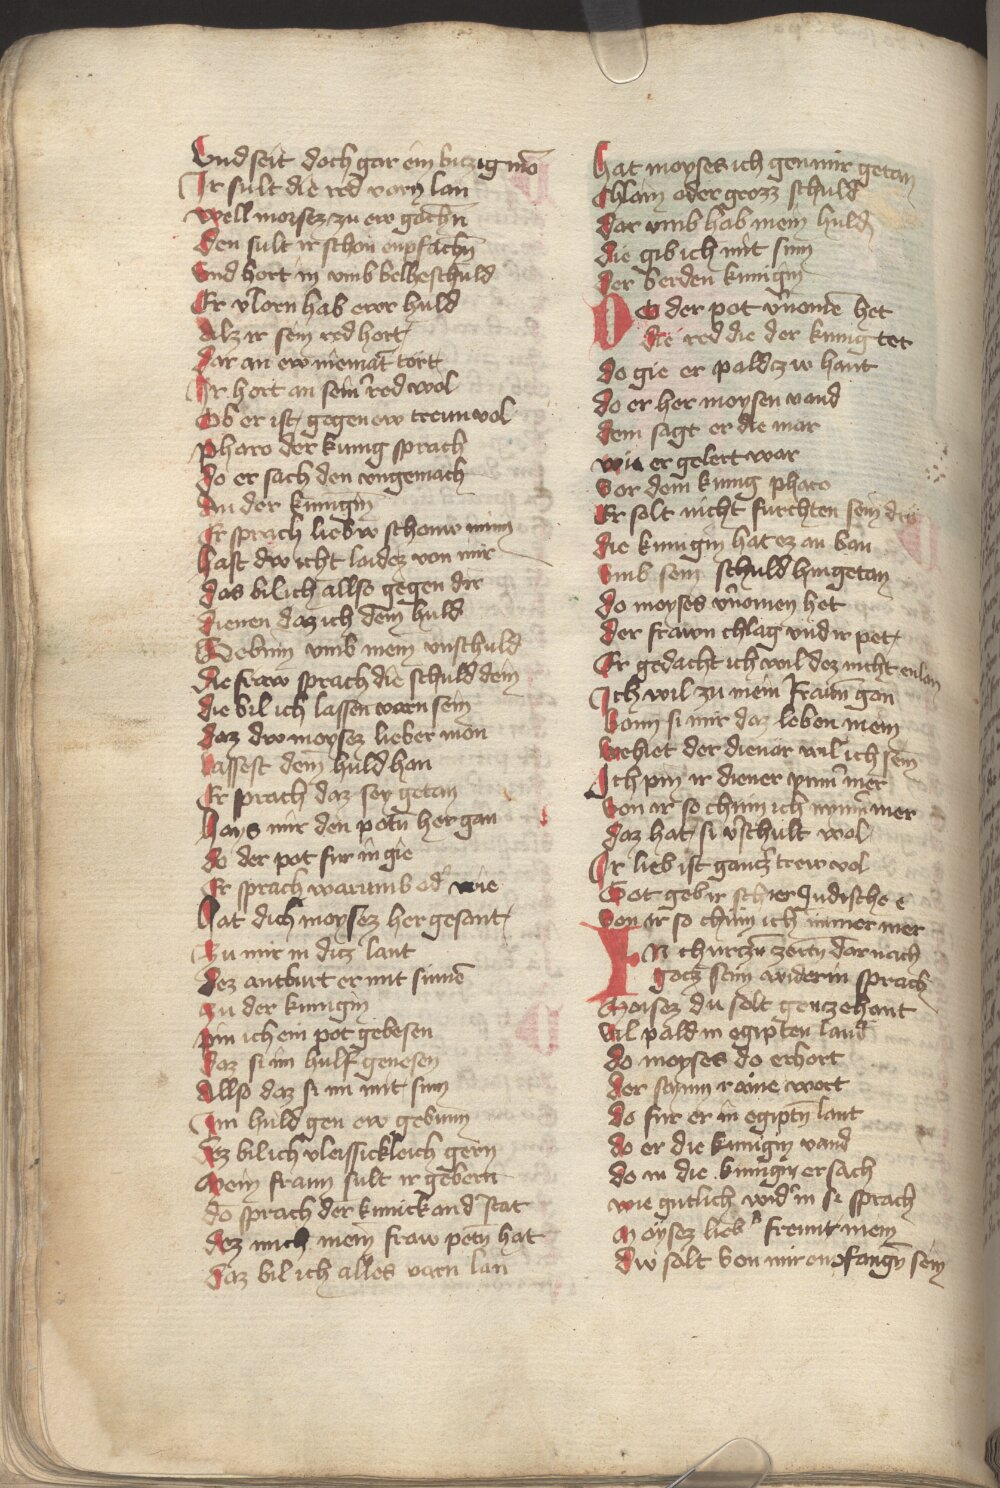 Vnd seit doch gar ein biczig mo̅
Ir sult die red vorn lan
Well moisez zu ew gach̅n
Den sult ir schon enpfach̅n
Vnd hort in vmb belhe schuld
Er v̅lorn hab ewr huld
Alz ir sein red hort
Dar an ew niema̅t tort
Ir hort an seinr̅ red wol
Ob er ist gegen ew treun vol
Pharo der kunig sprach
Do er sach den vngemach
An der kunigin
Er sprach liebw schonw minn
Hast dw icht laidez von mir
Das bil ich allso gegen dir
Dienen daz ich dein huld
Gebinn vmb mein vnschuld
Die fraw sprach die schuld dein
Die bil ich lassen varn sein
Daz dw moysez lieber mon
Lassest dein huld han
Er sprach daz sey getan
Hays mir den potn̅ her gan
Do der pot fur in gie
Er sprach warumb od' wie
Hat dich moysez her gesant
Zu mir in dicz lant
Dez antburt er mit sinne̅
Zu der kunigin
Pin ich ein pot gebesen
Daz si im hulf genesen
Allso daz si im mit sinn
Im huld gen ew gebunn
Dez bil ich vleissickleich gern
Mein fraun sult ir gebern
Do sprach der kunick an d' stat
Dez mich mein fraw petn̅ hat
Daz bil ich alles varn lan
Hat moyses ich gen mir getan
Chlain oder grozz schuld
Dar vmb hab mein huld
Die gib ich mit sinn
Der berden kunigin
Do der pot v̅nome̅ het
Die red die der kunig tet
Do gie er pald zw hant
Do er her moysen vand
Dem sagt er die mar
Wie er gelert war
Vor dem kunig pharo
Er solt nicht furchten sein dro
Die kunigin hat ez an ban
Vmb sein schuld hin getan
Do moyses v̅nomen het
Der frawn chlag vnd ir pet
Er gedacht ich wil dez nicht enlan
Ich wil zu mein fraun̅ gan
Vann si mir daz leben mein
Behiet der dienar wil ich sein
Ich pin ir diener ymm̅mer
Von ir so chum ich nymm̅mer
Daz hat si v̅schult wol
Ir lieb ist gancz̅ trew vol
Got geb ir schier Judische e
Von ir so chum ich nimer mer
In churczn̅ zeitn̅ dar nach
Gocz sein wider in sprach
Moisez du solt gen zehant
Vil pald in egipten land
Do moyses do erhort
Der stymm raine wort
Do fur er in egiptn̅ lant
Do er die kunigin vand
Do in die kunigin ersach
Wie gutlich wid' in si sprach
Moysez lieb' freunt mein
Dw solt von mir enpfangn̅ sein